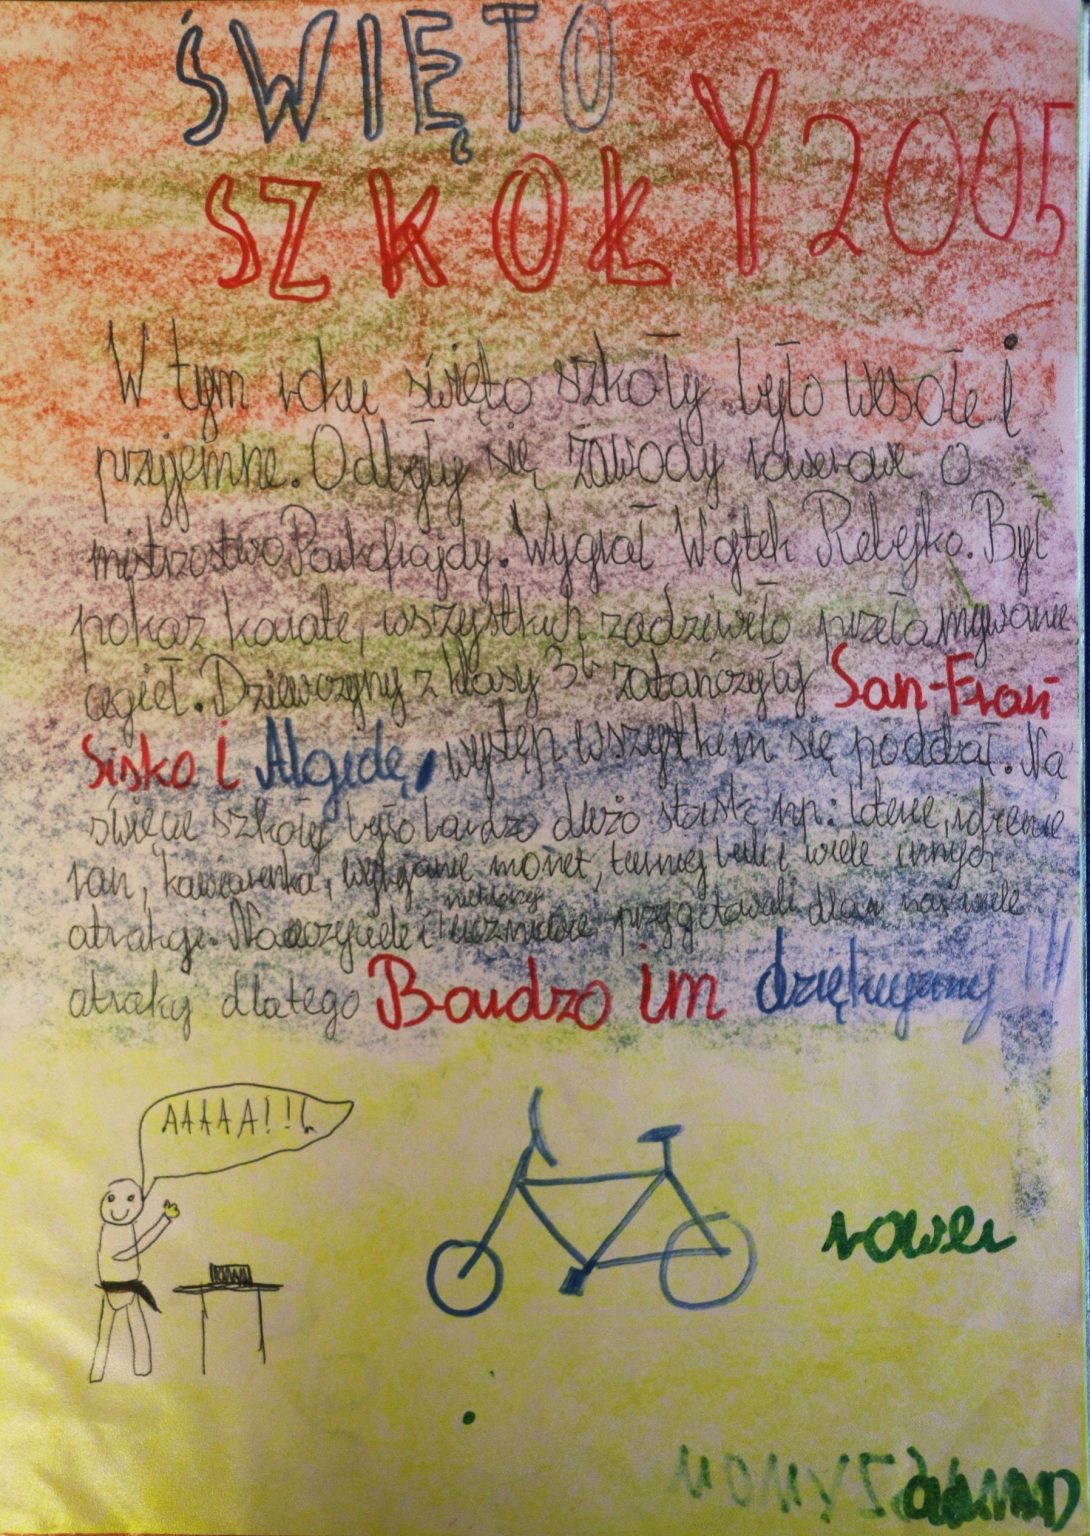 ŚWIĘTO
SZKOŁY 2005
W tym roku święto szkoły było wesołe i
przyjemne. Odbyły się zawody rowerowe o
mistrzostwo Parkofrajdy. Wygrał Wojtek Rebejko. Był
pokaz karate, wszystkich zadziweło przełamywanie
cegieł. Dziewczyny z klasy 3b zatańczyły San-Fran
Sisko i Algidę, występ wszystkim się podobał. Na
święcie szkoły było bardzo dużo stoisk np:
ran, kawiarenka, monet, turniej i wiele innych
atrakcji. Nauczyciele i niektórzy uczniowie przygotowali dla nas wiele
atrakcji dlatego Bardzo im dziękujemy !!!
AAAAA!!!
rower